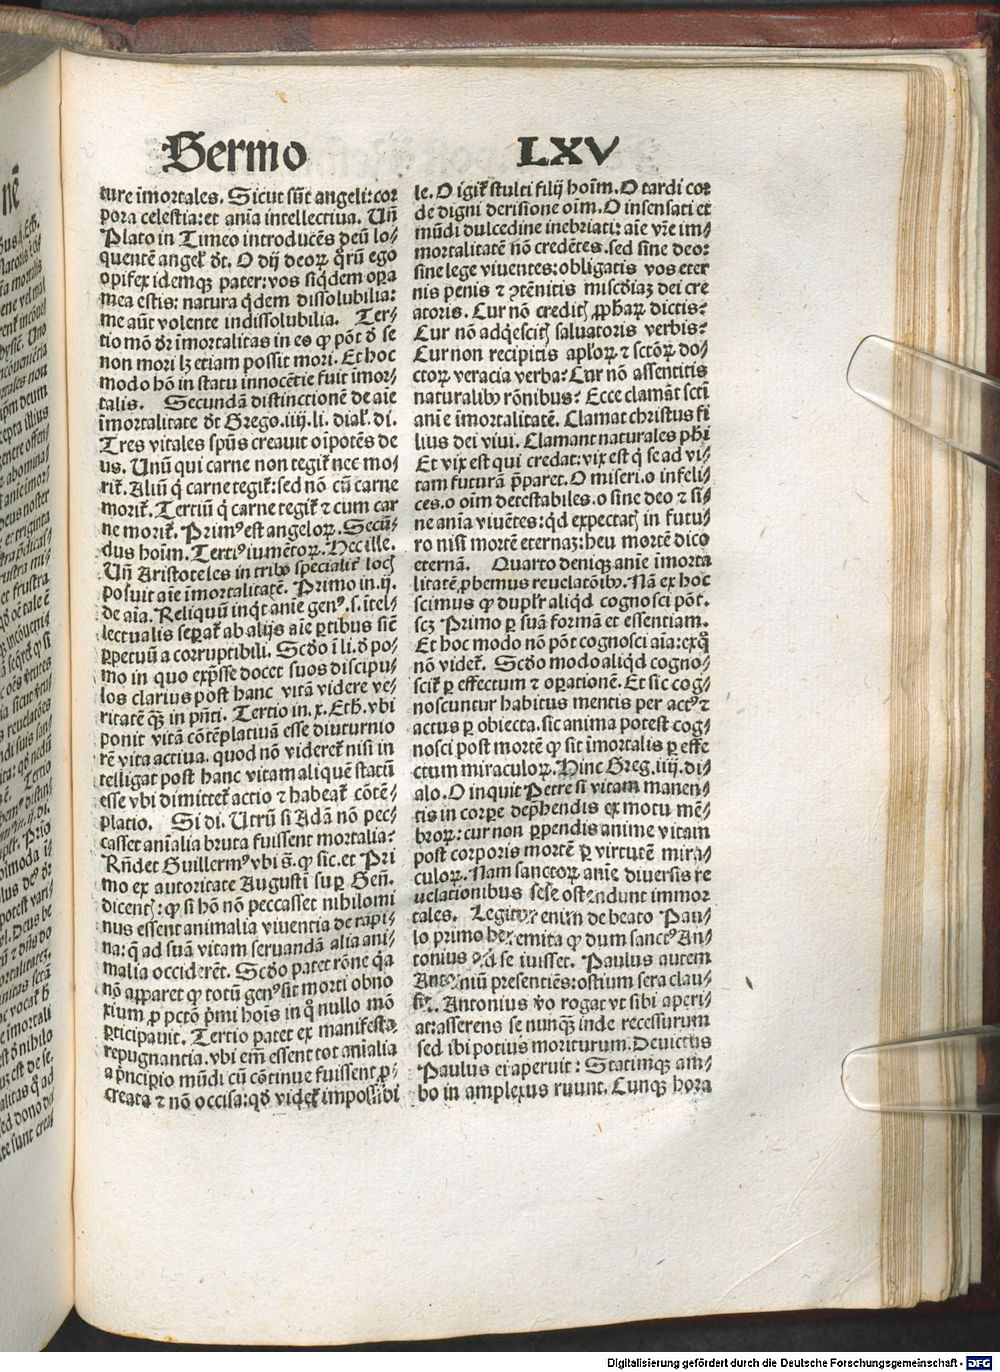 Sermo LXV
ture īmortales. Sicut sūt angeli: cor
pora celestia: et aīa intellectiua. Uñ
Plato in Timeo introducēs deū lo⸗
quentē angeľ dt̄. O dij deoꝝ qrū ego
opifex idemqꝫ pater: vos siqdem oꝑa
mea estis: natura qdem dissolubilia:
me aūt volente indissolubilia. Ter⸗
tio mō dr̄ īmortalitas in eo qꝙ pōt ꝺ se
non mori lꝫ etiam possit mori. Et hoc
modo hō in statu innocētie fuit īmor⸗
talis. Secundā distinctionē de aīe
īmortalitate dt̄ Grego. iiij. li. dial'. di.
Tres vitales spūs creauit oīpotēs de
us. Unū qui carne non tegit̄ nec mo⸗
rit̄. Aliū q̄ carne tegit̄: sed nō cū carne
morit̄. Tertiū q̄ carne tegit̄ ⁊ cum car
ne morit̄. Primꝰ est angeloꝝ. Secū⸗
dus hoīm. Tertiꝰ iumētoꝝ. Hec ille.
Uñ Aristoteles in tribꝰ specialit̄ locꝭ
posuit aīe īmortalitatē. Primo in. ij.
de aīa. Reliquū inqt aīe genꝰ. s. ītel⸗
lectualis seꝑat̄ ab alijs aīe ꝑtibus sic̄
ꝑpetuū a corruptibili. Scd̄o ī li. ꝺ po⸗
mo in quo exp̄sse docet suos discipu⸗
los clarius post hanc vitā videre ve⸗
ritatē qꝫ in pn̄ti. Tertio in. x. Eth. vbi
ponit vitā cōtēplatiuā esse diuturnio
rē vita actiua. quod nō videret̄ nisi in
telligat post hanc vitam aliquē statū
esse vbi dimittet̄ actio ⁊ habeat̄ cōtē⸗
platio. Si di. Utrū si Adā nō pec⸗
casset aīalia bruta fuissent mortalia?
Rn̄det Guillermꝰ vbi s̄. ꝙ sic. et Pri
mo ex autoritate Augustī suꝑ Geñ.
dicentꝭ: ꝙ si hō nō peccasset nihilomi
nus essent animalia viuentia de rapi⸗
na: q̄ ad suā vitam seruandā alia ani⸗
malia occiderēt. Scd̄o patet rōne qa
nō apparet ꝙ totū genꝰ sit morti obno
xium ꝓ pctō pmi hoīs in q̊ nullo mō
ꝑticipauit. Tertio patet ex manifesta
repugnantia. vbi em̄ essent tot aīalia
a pncipio mūdi cū cōtinue fuissent ꝓ⸗
creata ⁊ nō occisa: qd̄ videt̄ impossibi
le. O igit̄ stulti filij hoīm. O tardi cor
de digni derisione oīm. O insensati et
mūdi dulcedine inebriati: aīe vr̄e im⸗
mortalitatē nō credētes. sed sine deo:
sine lege viuentes: obligatis vos eter
nis penis ⁊ ꝯtēnitis miscd̄iaꝫ dei cre
atoris. Cur nō creditꝭ ꝓphaꝝ dictis?
Cur nō adqescitꝭ saluatoris verbis?
Cur non recipitis apl̄oꝝ ⁊ sctōꝝ do⸗
ctoꝝ veracia verba? Cur nō assentitis
naturalibꝰ rōnibus? Ecce clamāt scti
anīe īmortalitatē. Clamat christus fi
lius dei viui. Clamant naturales phi
Et vix est qui credat: vix est q̄ se ad vi⸗
tam futurā p̄paret. O miseri. o infeli⸗
ces. o oīm detestabiles. o sine deo ⁊ si⸗
ne anīa viuētes: qd expectatꝭ in futu⸗
ro nisi mortē eternaꝫ: heu mortē dico
eternā. Quarto deniqꝫ anīe imorta
litatē ꝓbemus reuelatōibꝰ. Nā ex hoc
scimus ꝙ dupl'r aliqd cognosci pōt.
scꝫ Primo ꝑ suā formā et essentiam.
Et hoc modo nō pōt cognosci aīa: exq̊
nō videt̄. Scd̄o modo aliqd cogno⸗
scit̄ ꝑ effectum ⁊ oꝑationē. Et sic cog⸗
noscuntur habitus mentis per actꝰ ⁊
actus ꝑ obiecta. sic anima potest cog⸗
nosci post mortē ꝙ sit īmortalis ꝑ effe
ctum miraculoꝝ. Hinc Greg. iiij. di⸗
alo. O inquit Petre si vitam manen⸗
tis in corpe dep̄hendis ex motu mē⸗
broꝝ: cur non ꝑpendis anime vitam
post corporis mortē ꝑ virtutē mira⸗
culoꝝ. Nam sanctoꝝ anīe diuersis re
uelationibus sese ostendunt immor
tales. Legitur enim de beato Pau⸗
lo primo heremita ꝙ dum sanctꝰ An⸗
tonius ad se iuisset. Paulus autem
Antoniū presentiēs: ostium sera clau⸗
sit. Antonius vo rogat vt sibi aperi⸗
at: asserens se nunqꝫ inde recessurum
sed ibi potius moriturum. Deuictus
Paulus ei aperuit: Statimqꝫ am⸗
bo in amplexus ruunt. Cunqꝫ hora
Digitalisierung gefördert durch die Deutsche Forschungsgemeinschaft - DFG